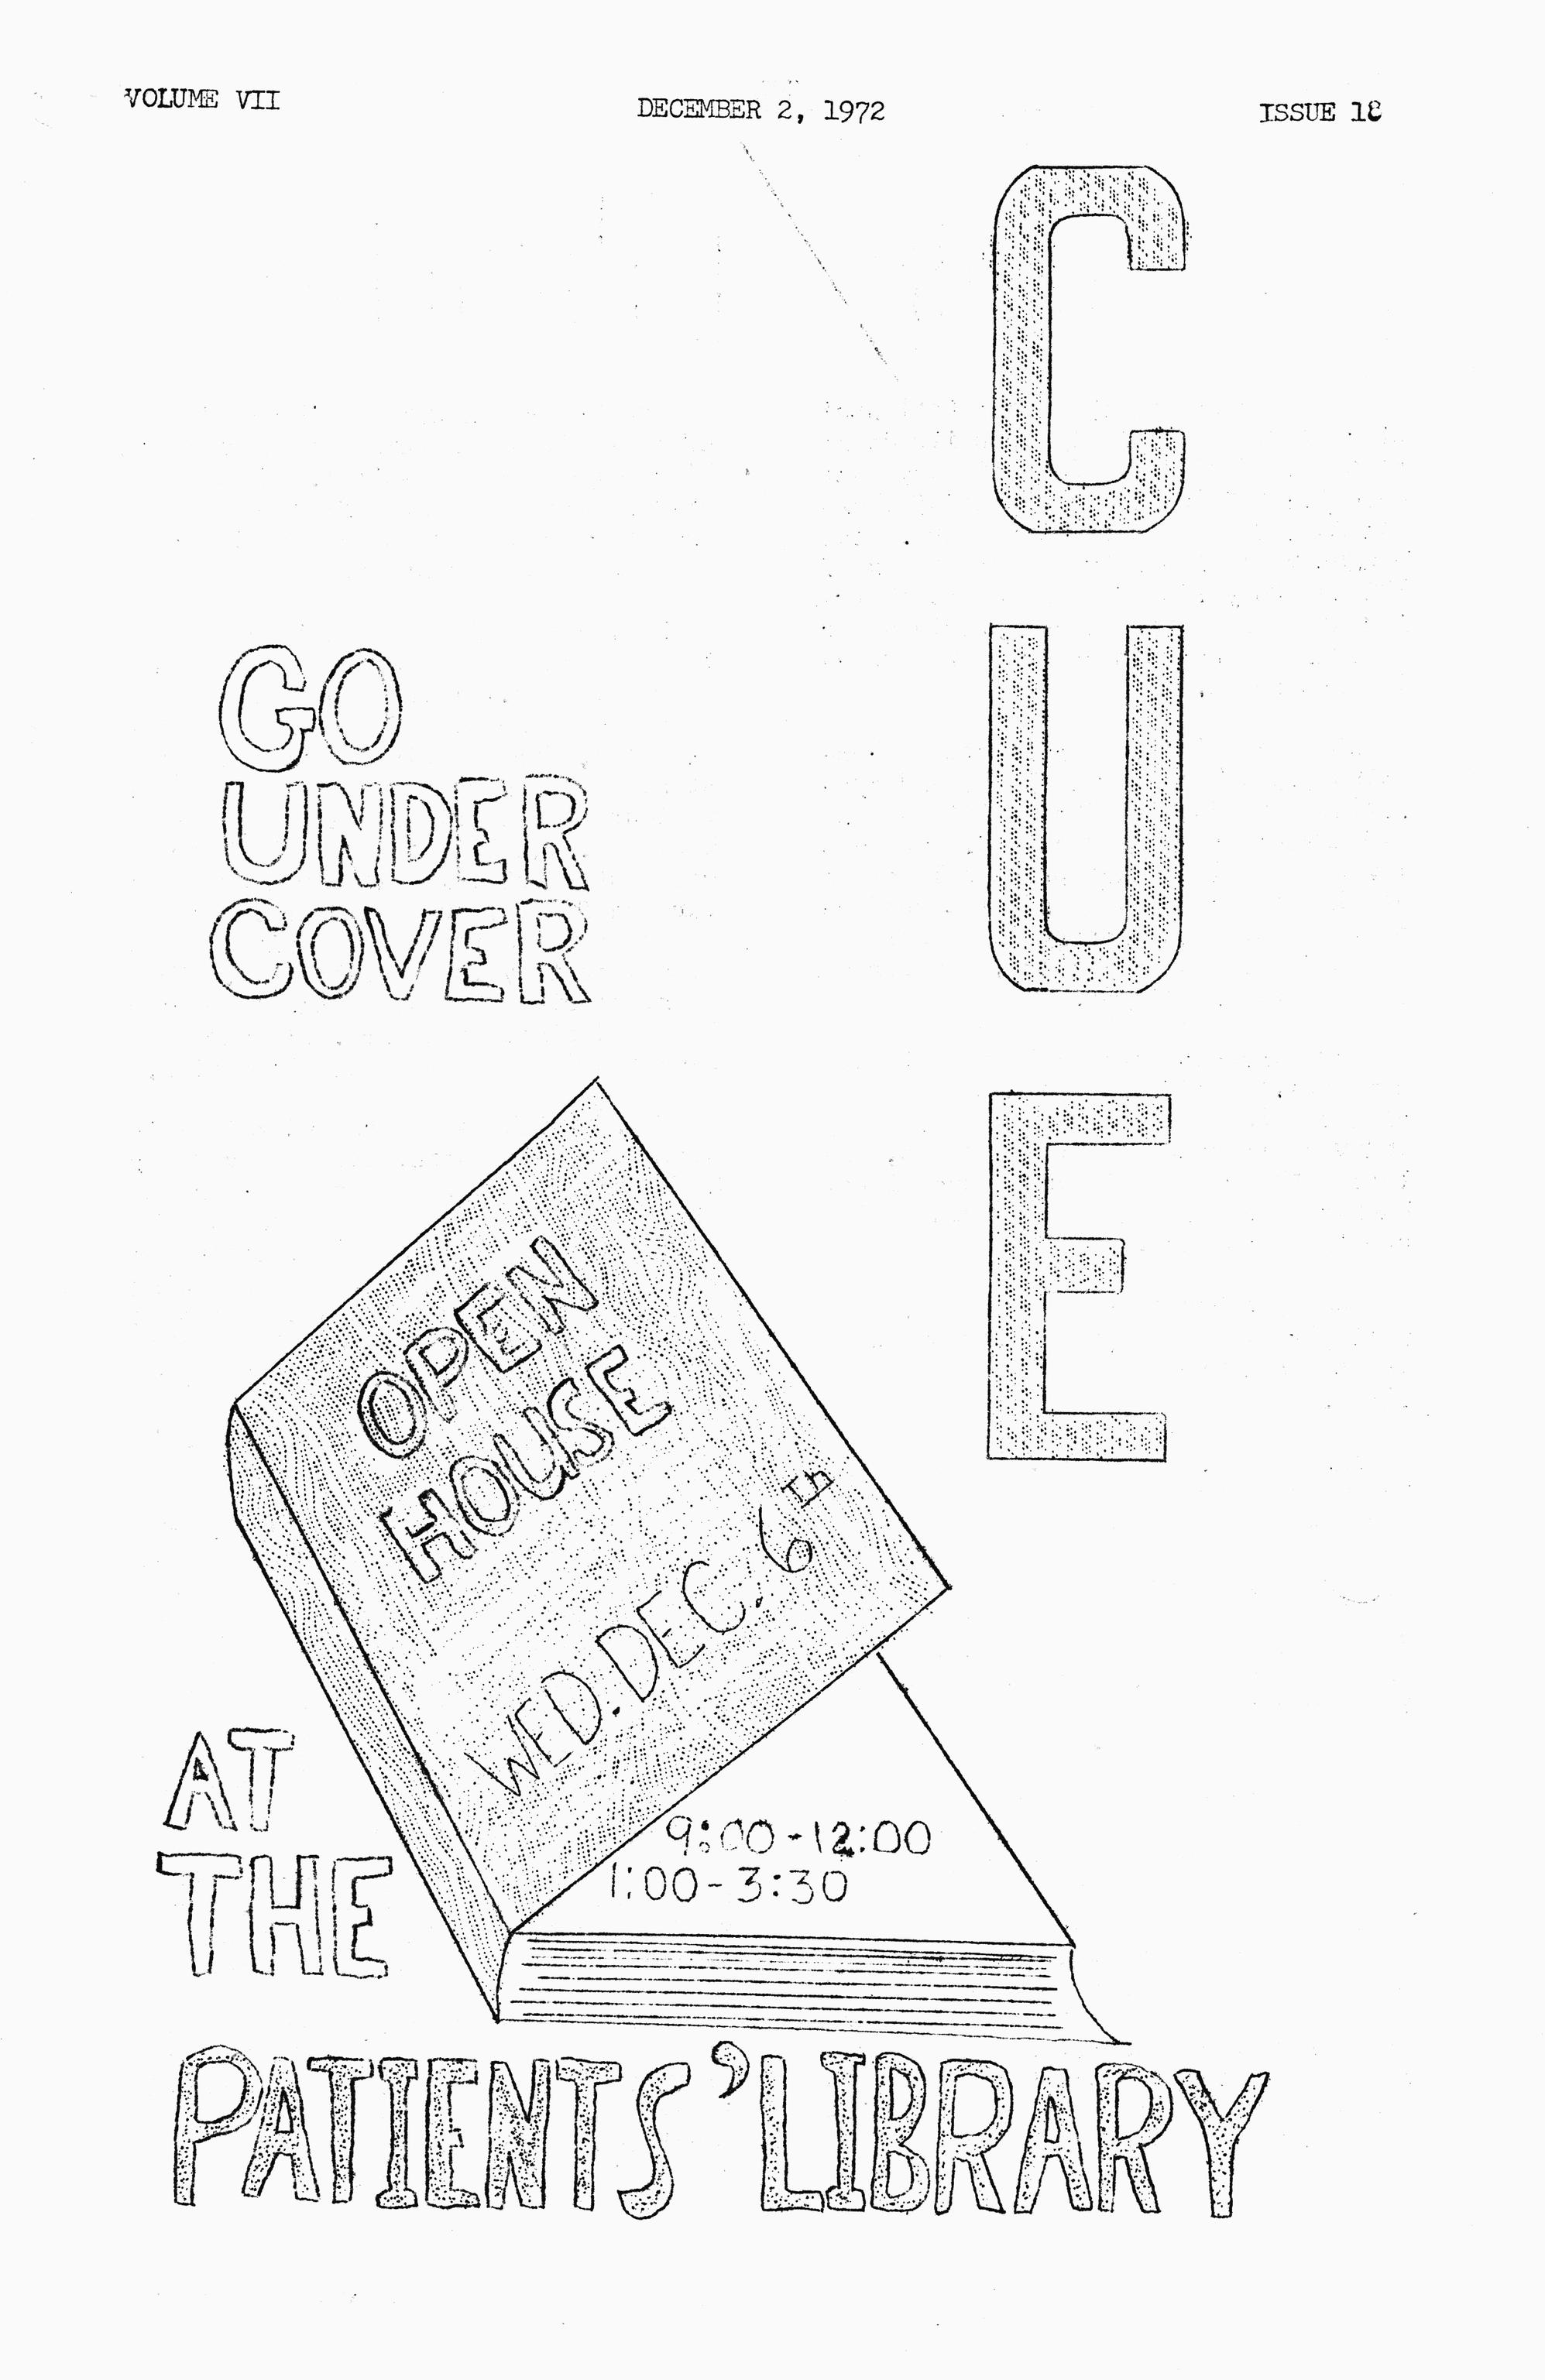 VOLUME VII
DECEMBER 2, 1972
ISSUE 18
CUE
GO
UNDER
COVER
OPEN
HOUSE
WED. DEC. 6th
9:00-12:00
1:00-3:30
AT
THE
PATIENTS' LIBRARY